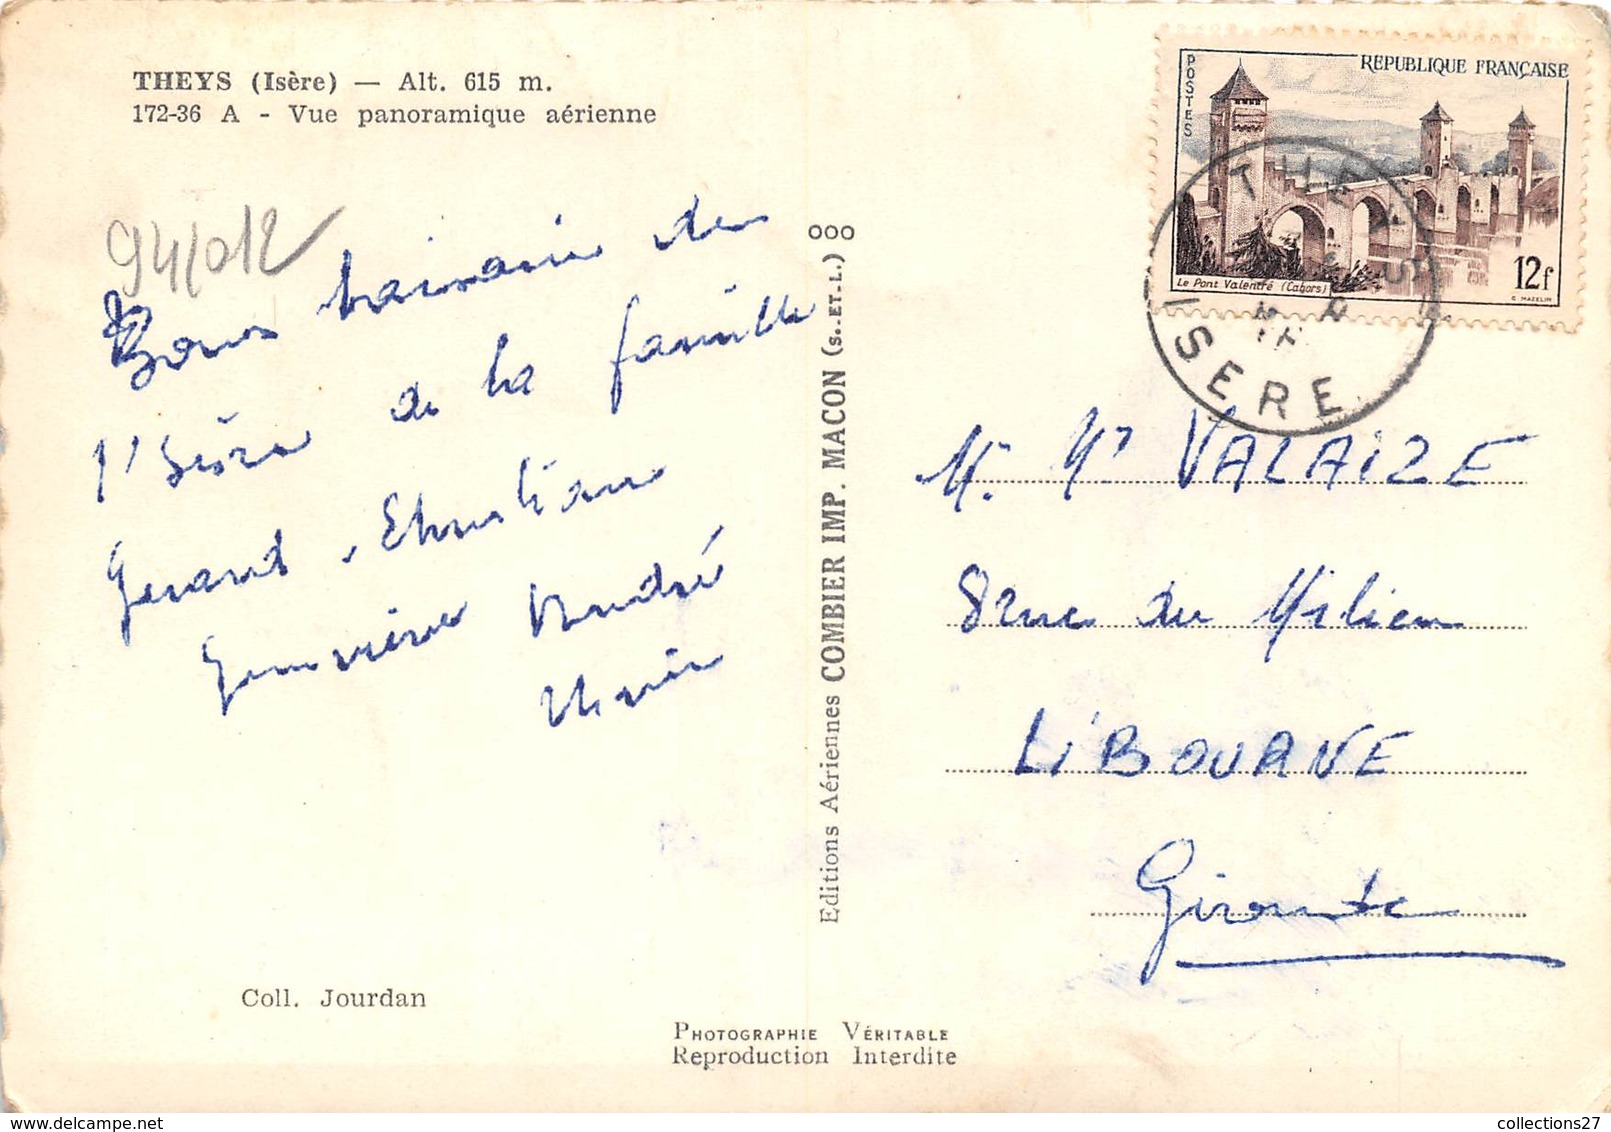 THEYS (Isère) — Alt. 615 m.
172-36 A - Vue panoramique aérienne
94/012
Bons baisers de
l'Isère de la famille
Gérard, Christiane
Geneviève André
Marie
Coll. Jourdan
ooo
Editions Aériennes COMBIER IMP. MACON (S.-ET-L.)
PHOTOGRAPHIE VÉRITABLE
Reproduction Interdite
POSTES
REPUBLIQUE FRANÇAISE
Le Pont Valentré (Cahors)
12f
C. MAZELIN
THEYS
ISERE
M. Mr VALAIZE
8 rue du Milieu
LIBOURNE
Gironde
collections27